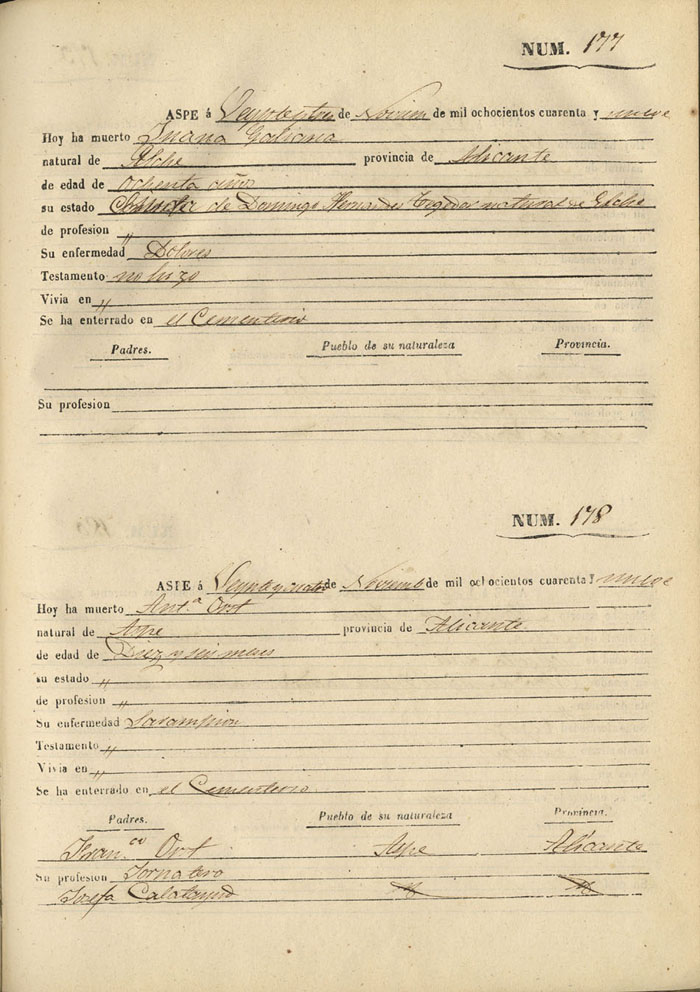 NUM. 177
ASPE á Veynte y tres de Noviem de mil ochocientos cuarenta y nueve
Hoy ha muerto Juana Galiana
natural de Elche provincia de Alicante
de edad de ochenta años
su estado de Domingo Hernandes Tegedor natural de Elche
de profesion "
Su enfermedad Dolores
Testamento no hizo
Vivia en "
Se ha enterrado en el Cementerio
Padres. Pueblo de su naturaleza Provincia.
Su profesion
NUM. 178
ASPE á Veynte y cuatro de Noviemb de mil ochocientos cuarenta y nueve
Hoy ha muerto Ant.ª Ort
natural de Aspe provincia de Alicante
de edad de Diez y seis meses
su estado "
de profesion "
Su enfermedad Sarampion
Testamento "
Vivia en "
Se ha enterrado en el Cementerio
Padres. Pueblo de su naturaleza Provincia.
Fran.co Ort Aspe Alicante
Su profesion Jornalero
Josefa Calatayud